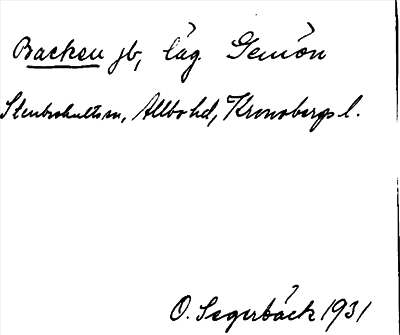 Backen jb, låg. Gemön
Stenbrohults sn, Allbo hd, Kronobergs l.
O. Segerbäck 1931